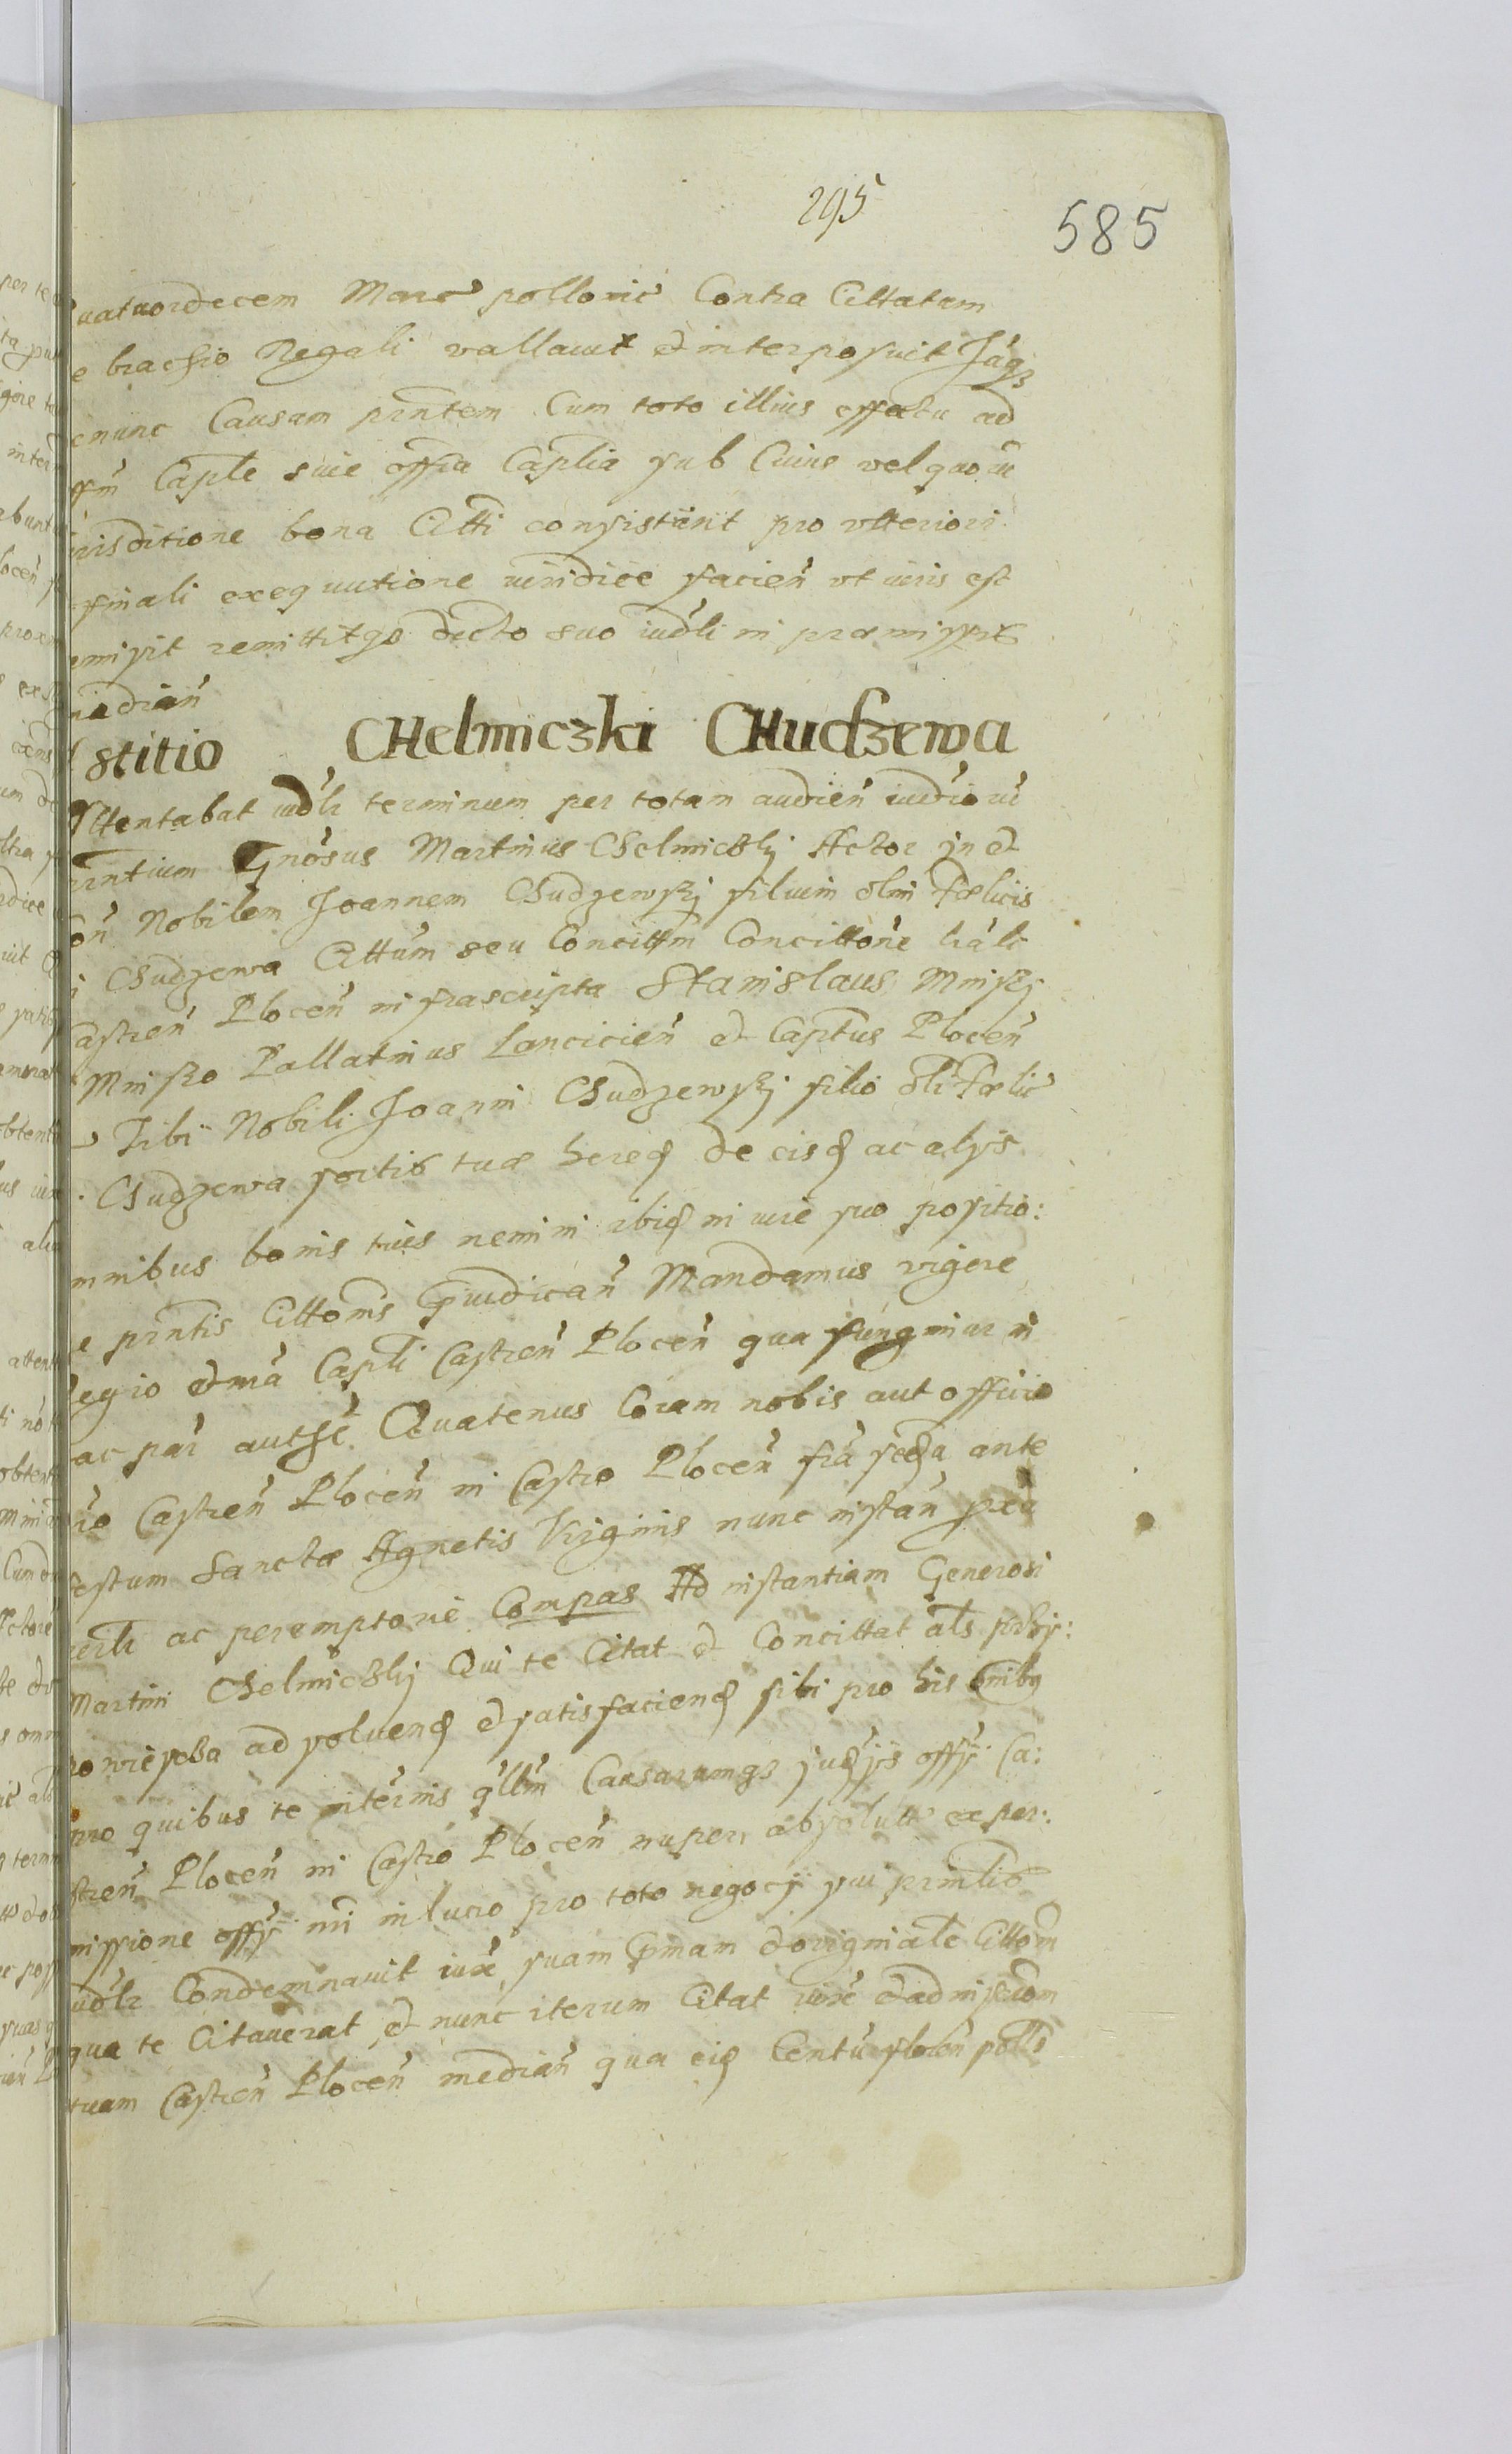 295
585
uatuordecem Marc pollonic Contra Cittatum
e brachio Regali vallauit et interposuit
enunc Causam prntem Cum toto illius effectu ad
Caplle siue offia Caplia sub Cuius vel quorũ
urisditione bona Citti consistunt pro vlteriori
finali exequutione iuridice facien vt iuris est
emisit remittitqs dicto suo iudli in præmissis
median
stitio CHelmiczki CHudzewa
Attentabat iudlr terminum per totam audien iudiciorũ
prntium Gnosus Martinus Chelmiczkij Actor in et
on Nobilem Joannem Chudzewskj filium olim Fœlicis
j Chudzewa Cittum seu Concittm Concittone lrali
Castren Plocen infrascripta Stanislaus Minskj
Minsko Pallatinus Lancicien et Captus Plocen
Tibi Nobili Joanni Chudzewskj filio olim Fœlic
Chudzewa sortis tuæ hered de eisd ac alijs
mnibus bonis tuis nemini ibid in iure suo positio:
e prntis Cittonis Mandamus vigore
Regio et mã Capli Castren Plocen qua fungimur in
ac par authe Quatenus Coram nobis aut officio
ro Castren Plocen in Castro Plocen fra scda ante
festum Sanctæ Agnetis Virginis nunc instan
erlr ac peremptorie Compas Ad instantiam Generosi
Martini Chelmiczkij Qui te Citat et Concittat als przy:
powieszcza ad soluend et satisfaciend sibi pro his
pro quibus te in termis qllm Causarumqs iudijs offij Ca:
stren Plocen in Castro Plocen nuper absolutt ex per:
missione offij nri in lucro pro toto negocij sui
iudlr Condemnauit iuxe suam primam et originale Cittom
qua te Citauerat et nunc iterum Citat iuxe et adniscom
tuam Castren Plocen median qua eid Centũ floren poll